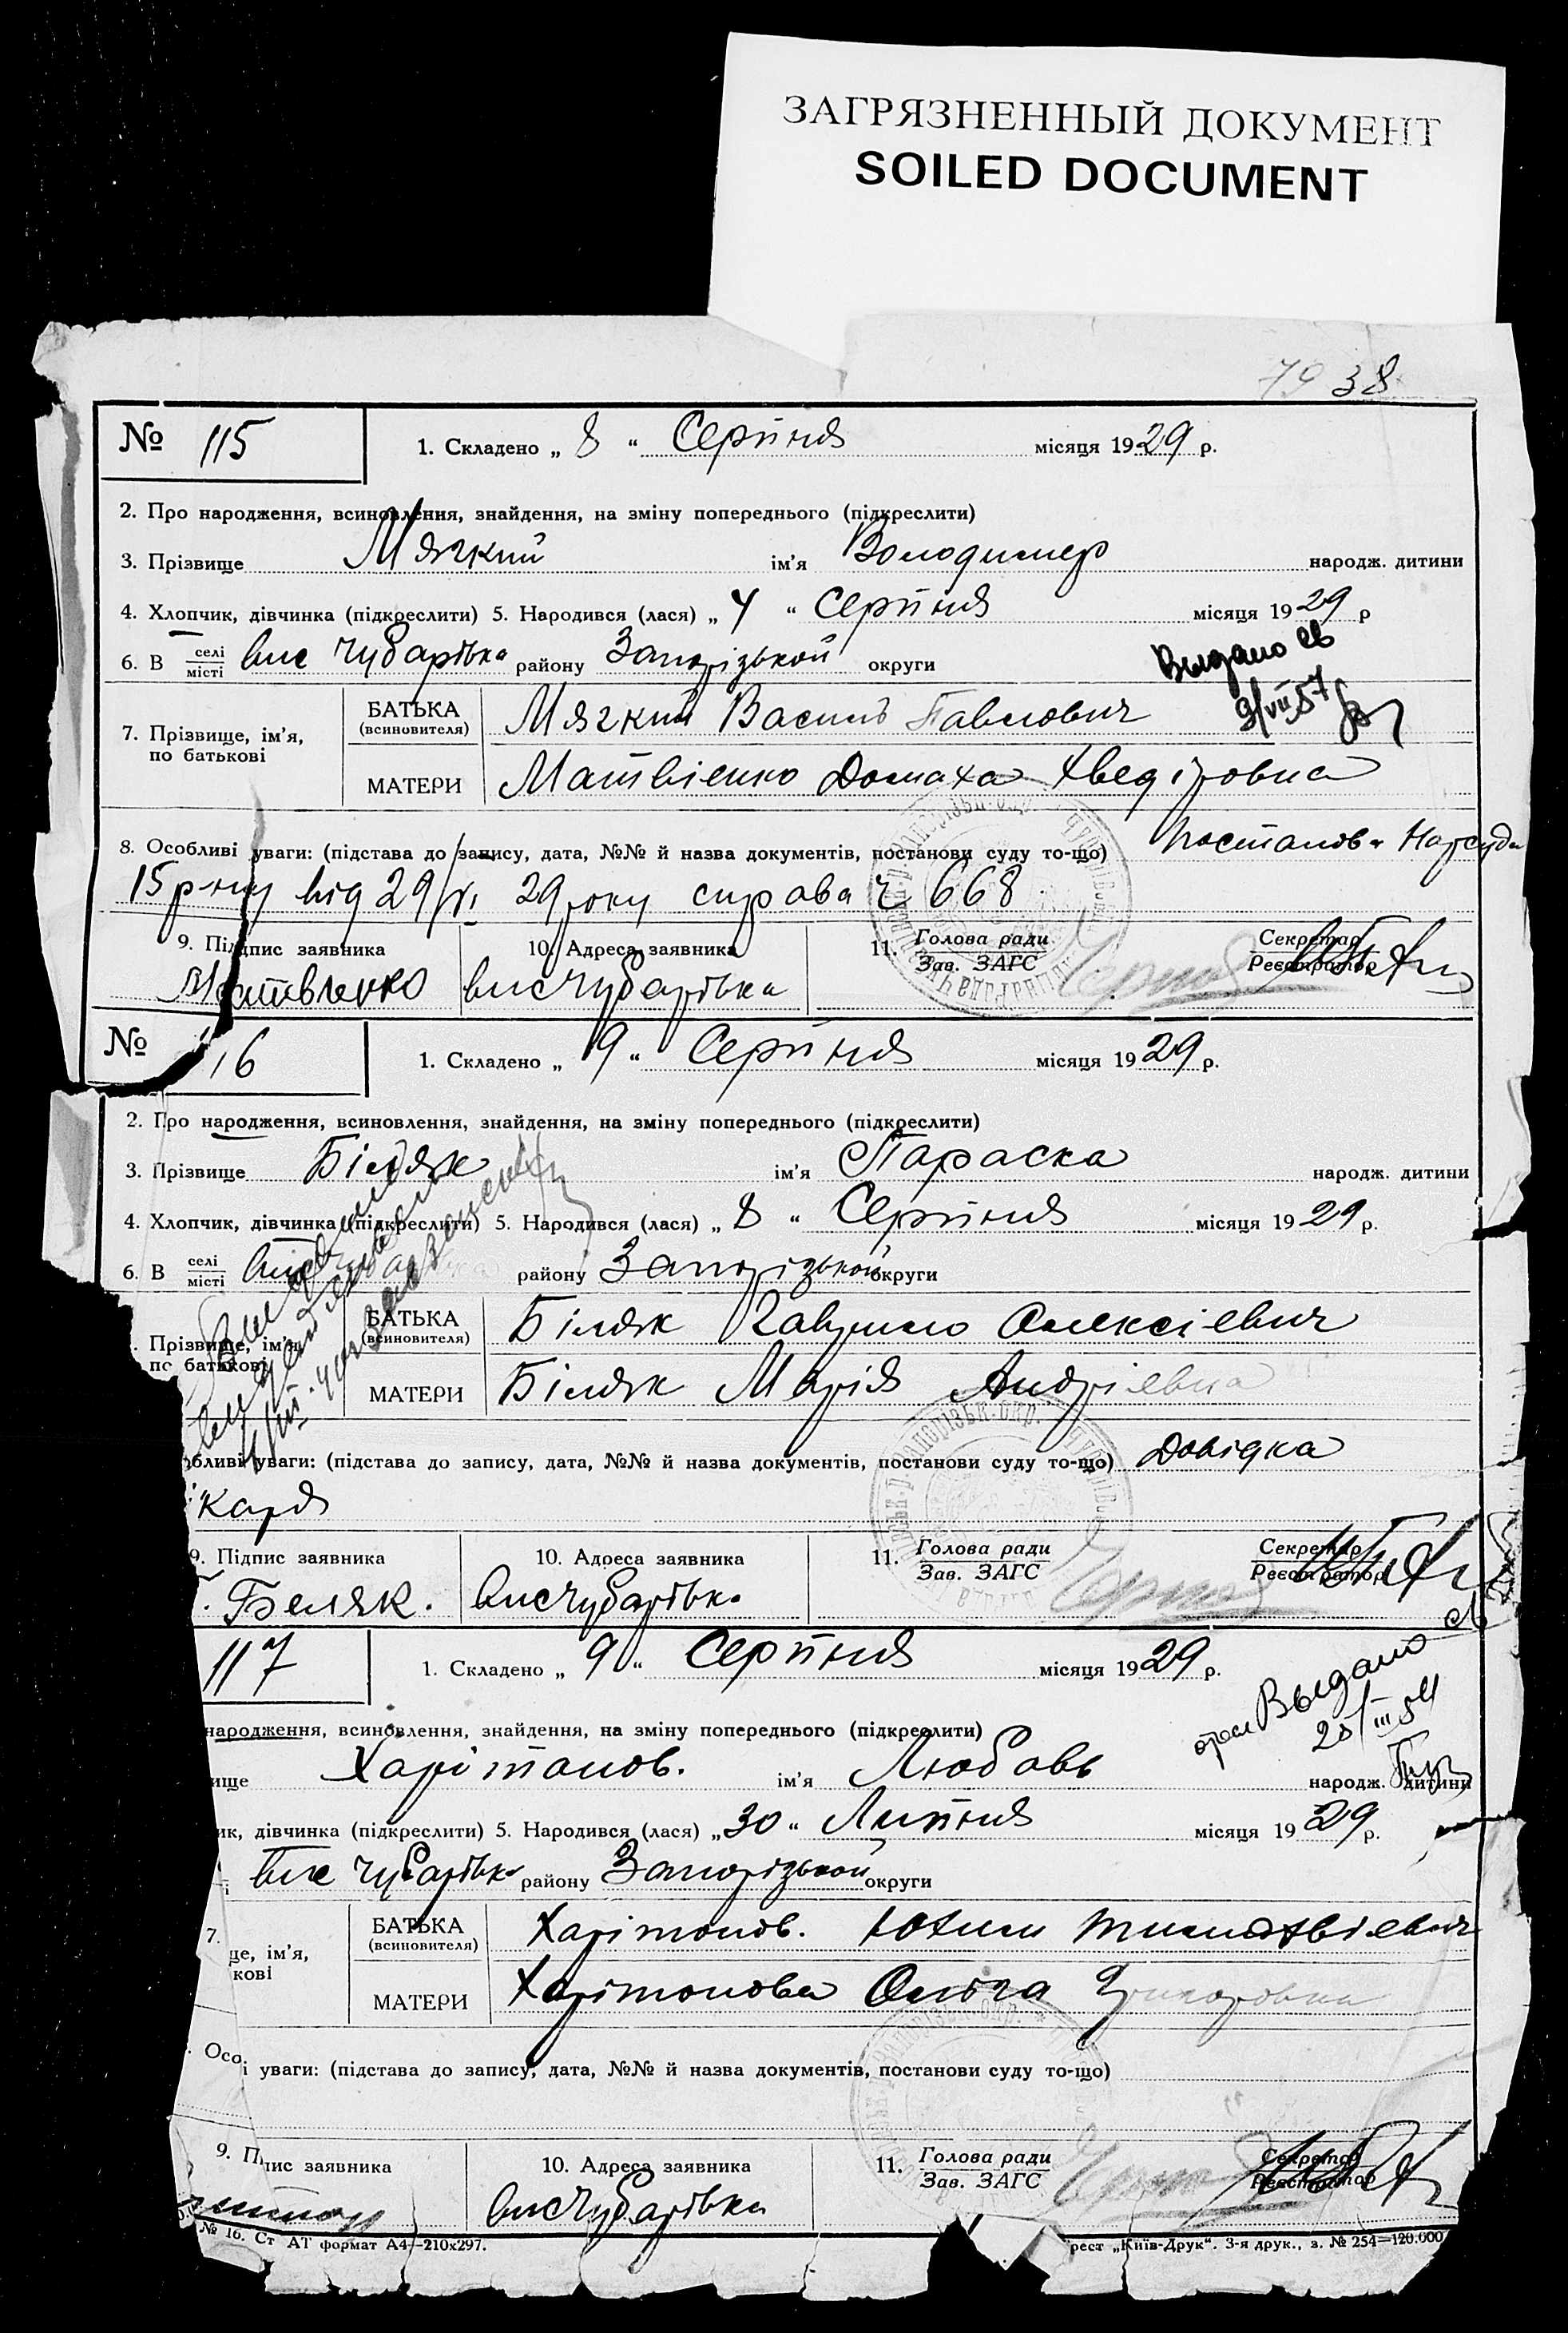 ЗАГРЯЗНЕННЫЙ ДОКУМЕНТ
SOILED DOCUMENT
79 38
№ 115
1. Складено „ 8 “ Серпня місяця 1929 р.
2. Про народження, всиновлення, знайдення, на зміну попереднього (підкреслити)
3. Прізвище Мягкий ім'я Володимер народж. дитини
4. Хлопчик, дівчинка (підкреслити) 5. Народився (лася) „ 4 “ Серпня місяця 1929 р
6. В селі місті вис Чубарівка району Запорізької округи
Выдано св
9/VII 57
7. Прізвище, ім'я, по батькові
БАТЬКА (всиновителя) Мягкий Василь Павлович
МАТЕРИ Матвіенко Домаха Хведіровна
8. Особливі уваги: (підстава до запису, дата, №№ й назва документів, постанови суду то-що) Постанова Нарсуда
15 р-ну від 29/VI 29 року справа ч 668
9. Підпис заявника 10. Адреса заявника 11. Голова ради Зав. ЗАГС Секретар Реєстратор
Матвиенко вис Чубарівка
№ 116
1. Складено „ 9 “ Серпня місяця 1929 р.
2. Про народження, всиновлення, знайдення, на зміну попереднього (підкреслити)
3. Прізвище Біляк ім'я Параска народж. дитини
4. Хлопчик, дівчинка (підкреслити) 5. Народився (лася) „ 8 “ Серпня місяця 1929 р.
6. В селі місті вис Чубарівка району Запорізької округи
. Прізвище, ім'я по батькові
БАТЬКА (всиновителя) Біляк Гаврило Олексієвич
МАТЕРИ Біляк Марія Андрієвна
бливі уваги: (підстава до запису, дата, №№ й назва документів, постанови суду то-що) Довідка
каря
9. Підпис заявника 10. Адреса заявника 11. Голова ради Зав. ЗАГС Секретар Реєстратор
. Беляк. вис Чубарівка
117
1. Складено „ 9 “ Серпня місяця 1929 р.
Выдано св
20/III 54
народження, всиновлення, знайдення, на зміну попереднього (підкреслити)
ище Харітонов. ім'я Любовь народж. дитини
ик, дівчинка (підкреслити) 5. Народився (лася) „ 30 “ Липня місяця 1929 р.
і вис Чубарівка району Запорізької округи
7. це, ім'я, кові
БАТЬКА (всиновителя) Харітонов. Юхим
МАТЕРИ Харітонова Ольга Григоровна
. Осо і уваги: (підстава до запису, дата, №№ й назва документів, постанови суду то-що)
9. П пис заявника 10. Адреса заявника 11. Голова ради Зав. ЗАГС Секретар Реєстратор
вис Чубарівка
№ 16. Ст АТ формат А4—210х297.
рест „Київ-Друк“. 3-я друк., з. № 254—120.000